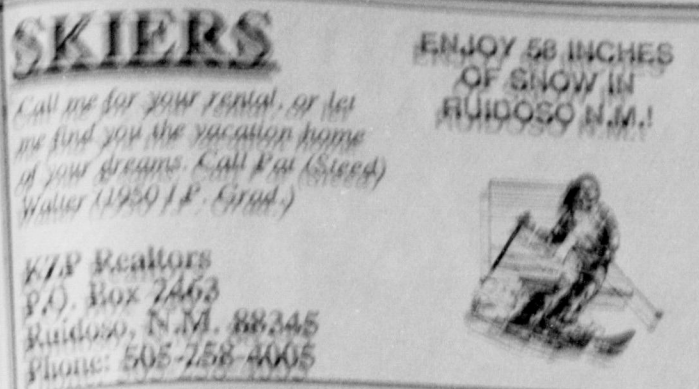 SKIERS
Call me for your rental, or let
me find you the vacation home
of your dreams. Call Pat (Steed)
Walter (1950 I.P. Grad.)
KZP Realtors
P.O. Box 2463
Ruidoso, N.M. 88345
Phone: 505-258-4005
ENJOY 58 INCHES
OF SNOW IN
RUIDOSO N.M.!